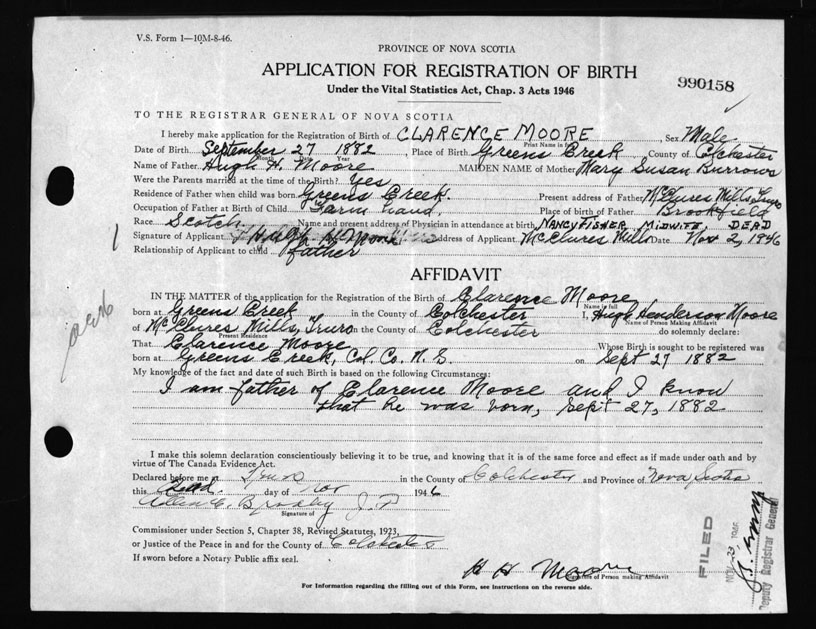 V.S. Form 1—10M-8-46.
PROVINCE OF NOVA SCOTIA
APPLICATION FOR REGISTRATION OF BIRTH
990158
Under the Vital Statistics Act, Chap. 3 Acts 1946
TO THE REGISTRAR GENERAL OF NOVA SCOTIA
I hereby make application for the Registration of Birth of CLARENCE MOORE Sex Male
Print Name in full
Date of Birth September 27 1882, Place of Birth Greens Creek County of Colchester
Month Day Year
Name of Father Hugh H. Moore MAIDEN NAME of Mother Mary Susan Burrows
Were the Parents married at the time of the Birth? Yes
Residence of Father when child was born Greens Creek. Present address of Father McClures Mills, Truro
Occupation of Father at Birth of Child Farm hand. Place of birth of Father Brookfield
Race Scotch Name and present address of Physician in attendance at birth NANCY FISHER, MIDWIFE, DEAD
Signature of Applicant Address of Applicant McClures Mills Date Nov 2, 1946
Relationship of Applicant to child father
AFFIDAVIT
IN THE MATTER of the application for the Registration of the Birth of Clarence Moore
Name in full
born at Greens Creek in the County of Colchester I, Hugh Henderson Moore
Name of Person Making Affidavit
of McClures Mills, Truro in the County of Colchester do solemnly declare:
Present Residence
That Clarence Moore Whose Birth is sought to be registered was
born at Greens Creek, Col. Co. N. S. on Sept 27 1882
My knowledge of the fact and date of such Birth is based on the following Circumstances:
I am father of Clarence Moore and I know
that he was born, Sept 27, 1882
I make this solemn declaration conscientiously believing it to be true, and knowing that it is of the same force and effect as if made under oath and by
virtue of The Canada Evidence Act.
Declared before me at Truro in the County of Colchester and Province of Nova Scotia
this day of Nov 1946
J P
Signature of
Commissioner under Section 5, Chapter 38, Revised Statutes, 1923,
or Justice of the Peace in and for the County of Colchester
If sworn before a Notary Public affix seal.
H H Moore
Signature of Person making Affidavit
For Information regarding the filling out of this Form, see instructions on the reverse side.
FILED
NOV 23 1946
Deputy Registrar General